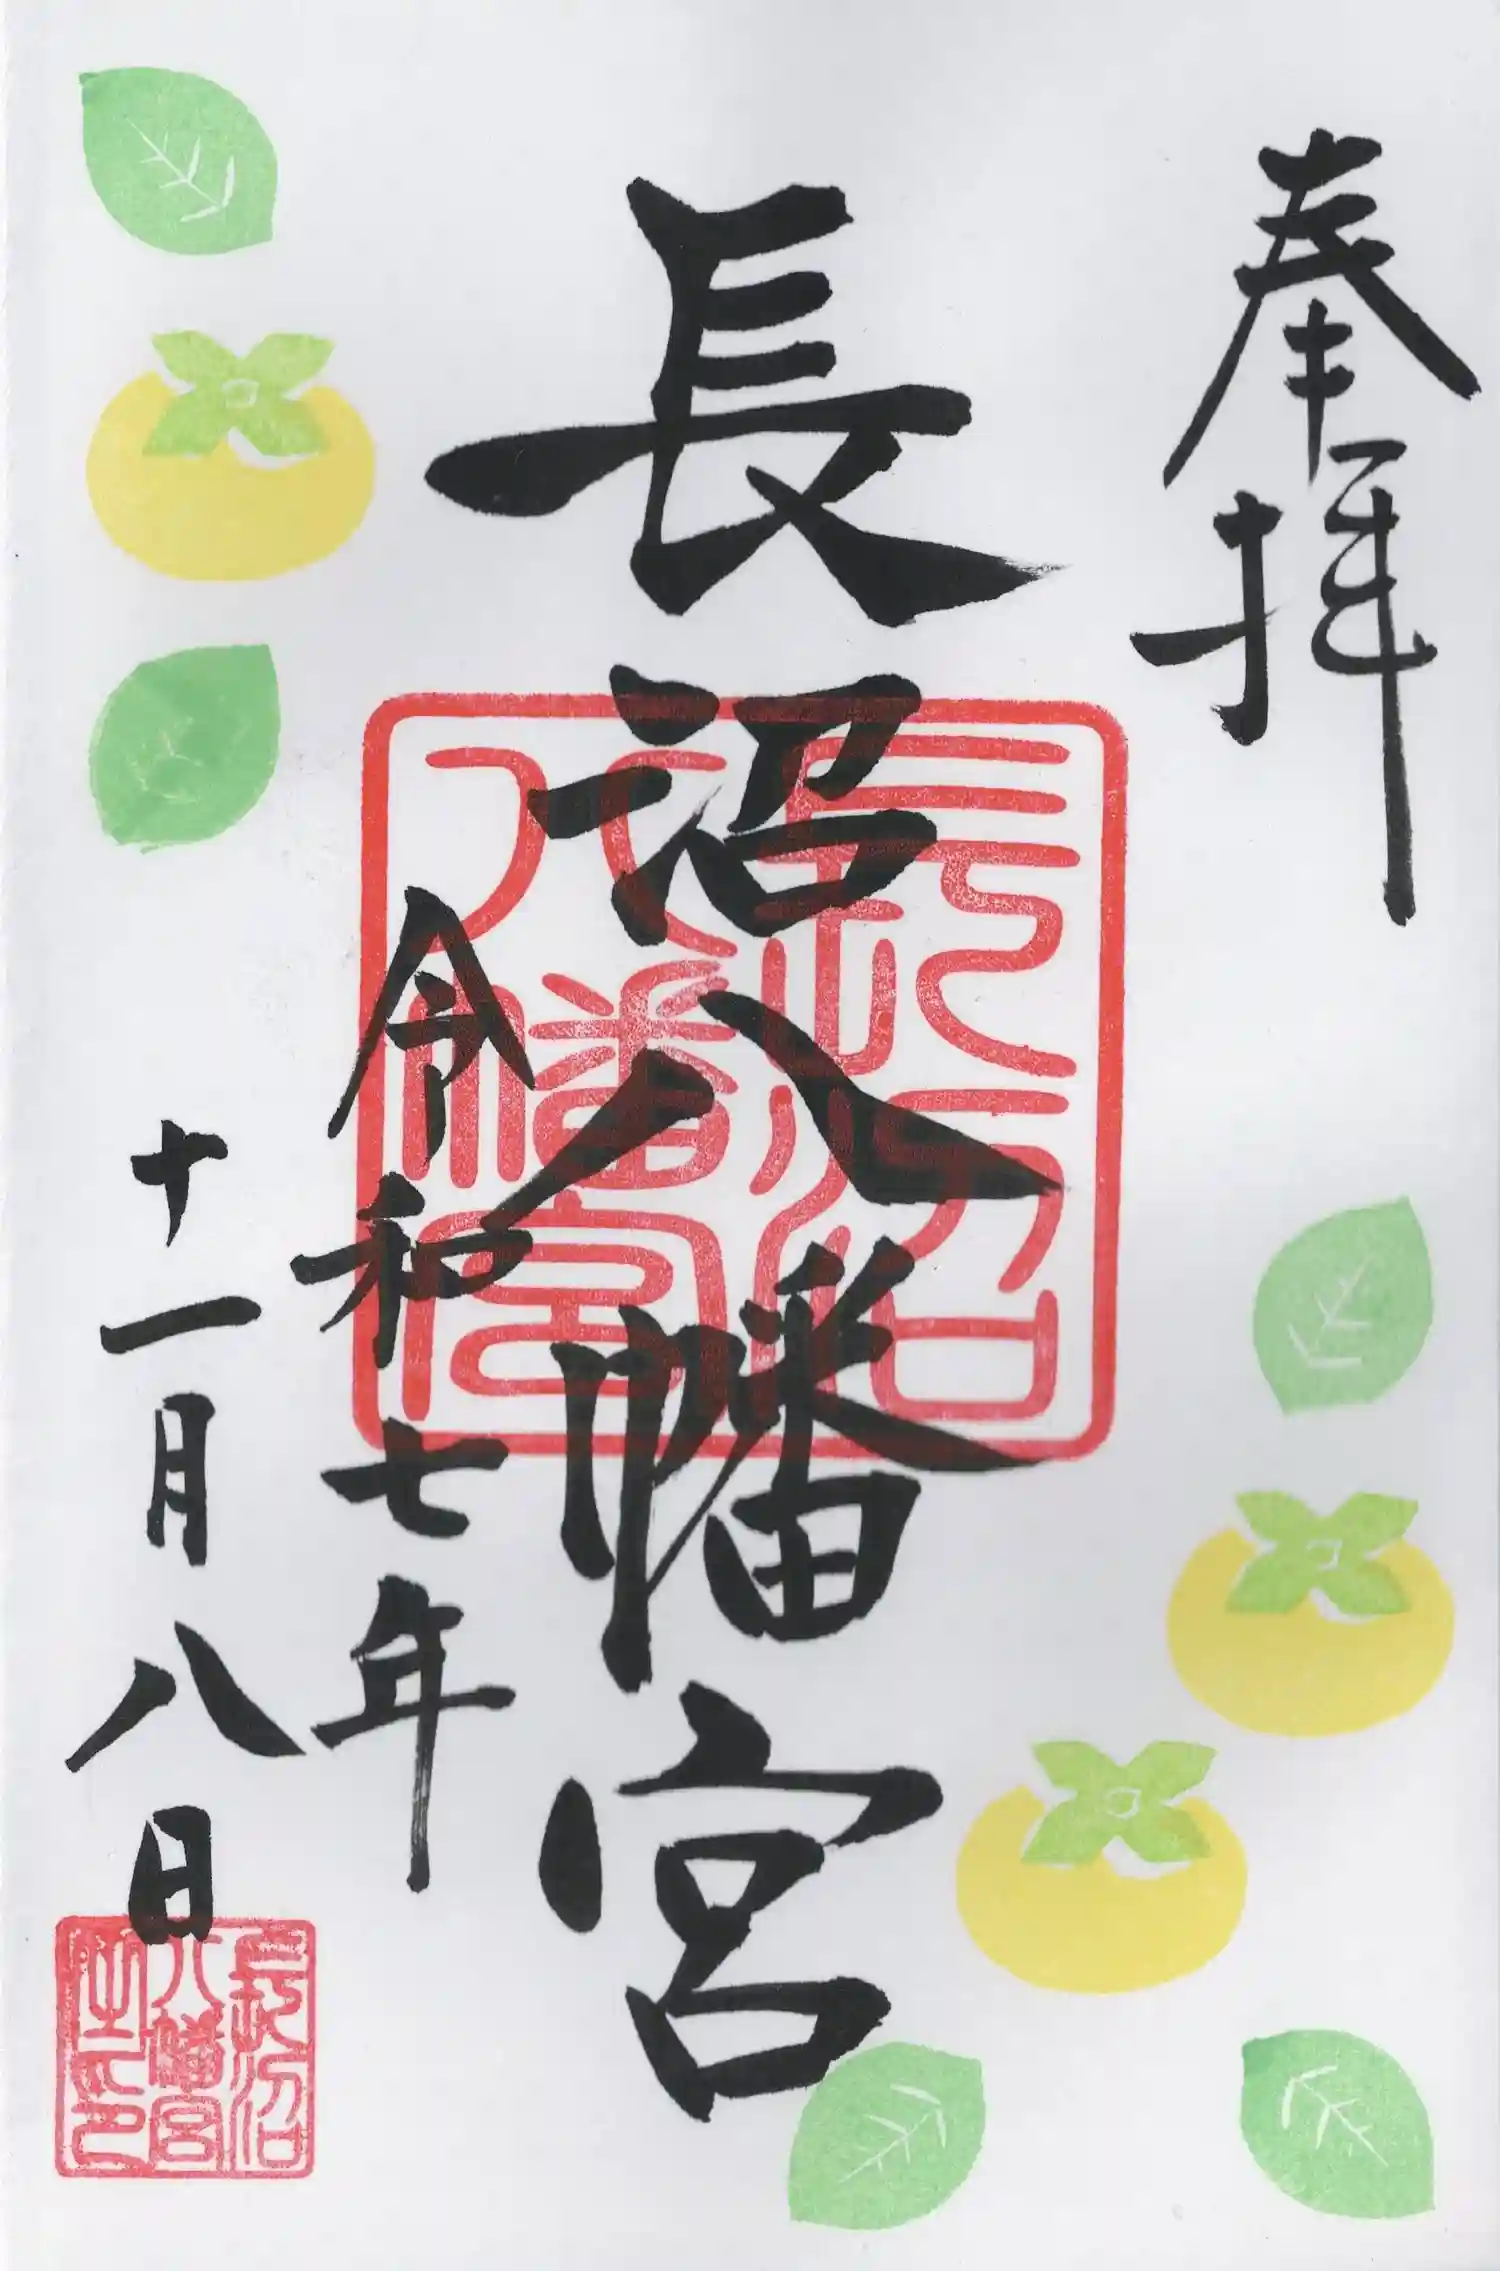 奉拝
長沼八幡宮
令和七年
十一月八日
長沼
八幡宮
長沼
八幡宮
之印